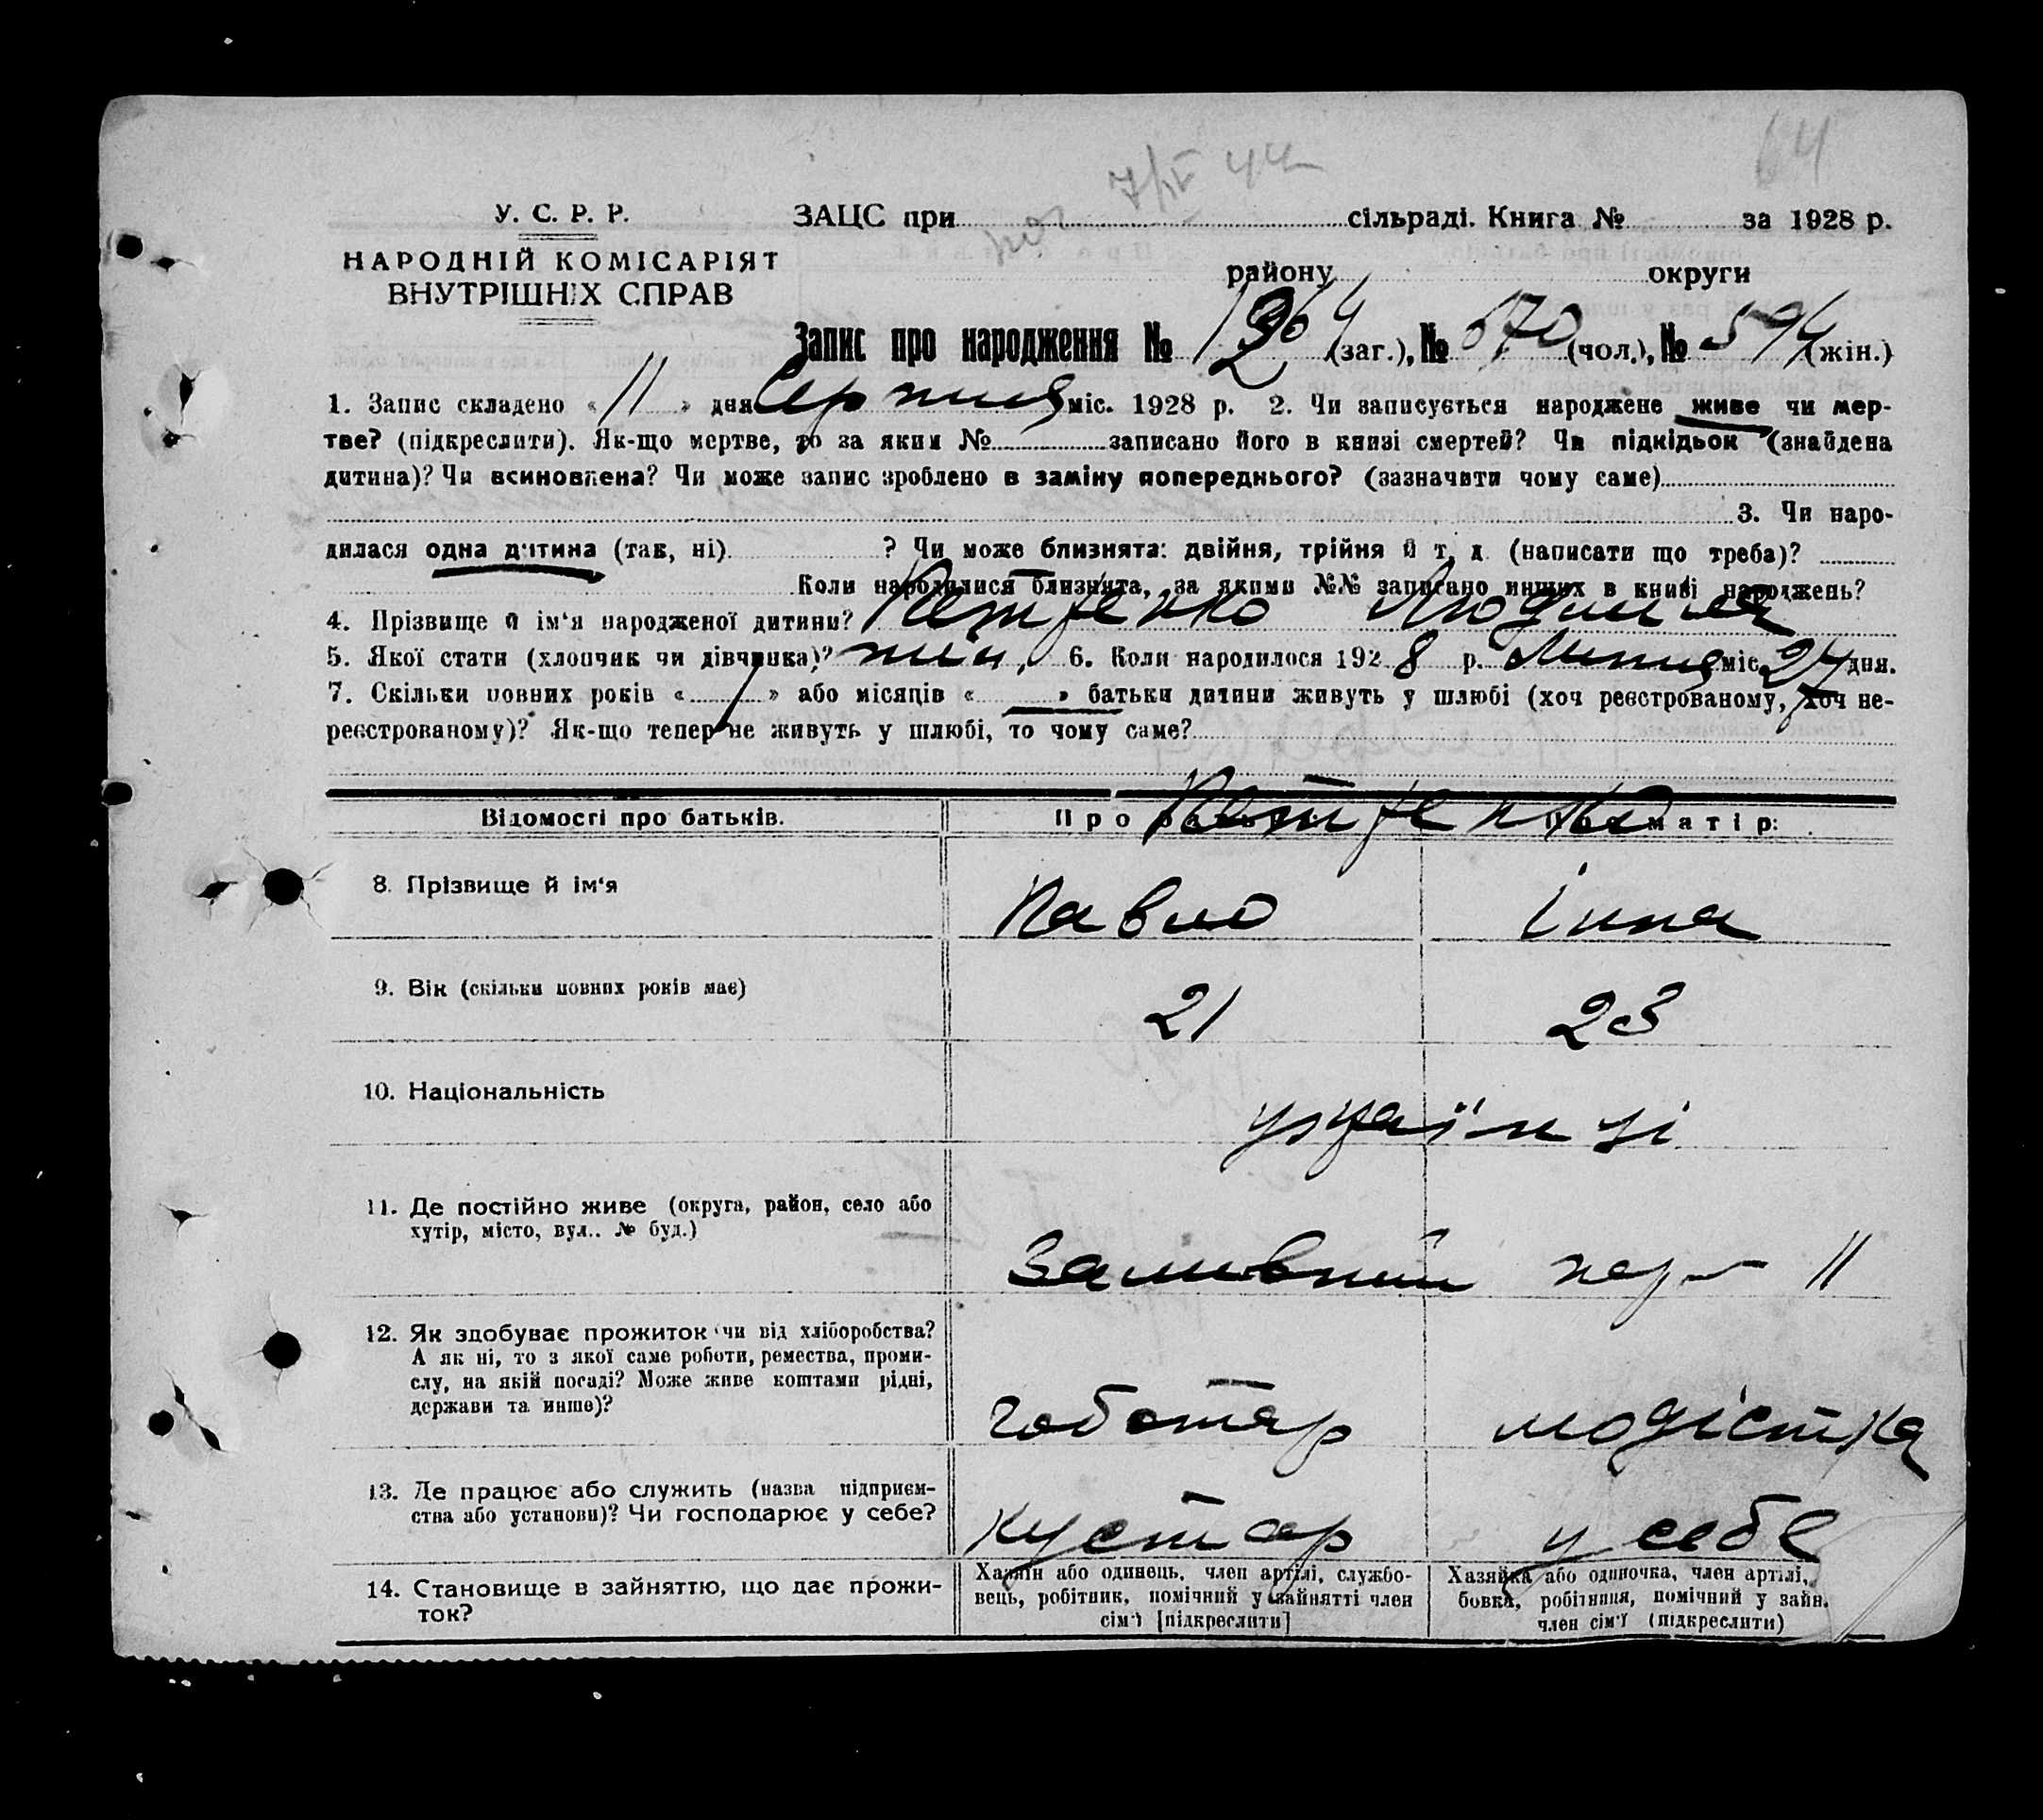 64
7/IV 44
У. С. Р. Р.
ЗАЦС при сільраді. Книга № за 1928 р.
НАРОДНІЙ КОМІСАРІЯТ
ВНУТРІШНІХ СПРАВ
району округи
Запис про народження № 1264 (заг.), № 670 (чол.), № 594 (жін.)
1. Запис складено « 11 » дня Серпня міс. 1928 р. 2. Чи записується народжене живе чи мер-
тве? (підкреслити). Як-що мертве, то за яким № записано його в книзі смертей? Чи підкідьок (знайдена
дитина)? Чи всиновлена? Чи може запис зроблено в заміну попереднього? (зазначити чому саме)
3. Чи наро-
дилася одна дитина (так, ні) ? Чи може близнята: двійня, трійня й т. д. (написати що треба)?
Коли народилися близнята, за якими №№ записано инших в книзі народжень?
4. Прізвище й ім‘я народженої дитини? Петренко Людмила
5. Якої стати (хлопчик чи дівчинка)? жін. 6. Коли народилося 1928 р. Липня міс. 24 дня.
7. Скільки повних років « 1 » або місяців « » батьки дитини живуть у шлюбі (хоч реєстрованому, хоч не-
реєстрованому)? Як-що тепер не живуть у шлюбі, то чому саме?
Відомості про батьків. Про Петренко матір:
8. Прізвище й ім‘я Павло Інна
9. Вік (скільки повних років має) 21 23
10. Національність українці
11. Де постійно живе (округа, район, село або
хутір, місто, вул.. № буд.)
Заливний пер 11
12. Як здобуває прожиток чи від хліборобства?
А як ні, то з якої саме роботи, ремества, проми-
слу, на якій посаді? Може живе коштами рідні,
держави та инше)?
чоботар модістка
13. Де працює або служить (назва підприєм-
ства або установи)? Чи господарює у себе?
кустар у себе
14. Становище в зайняттю, що дає прожи-
ток?
Хазяїн або одинець, член артілі, службо-
вець, робітник, помічний у зайнятті член
сім‘ї [підкреслити]
Хазяйка або одиночка, член артілі,
бовка, робітниця, помічний у зайн.
член сім‘ї (підкреслити)